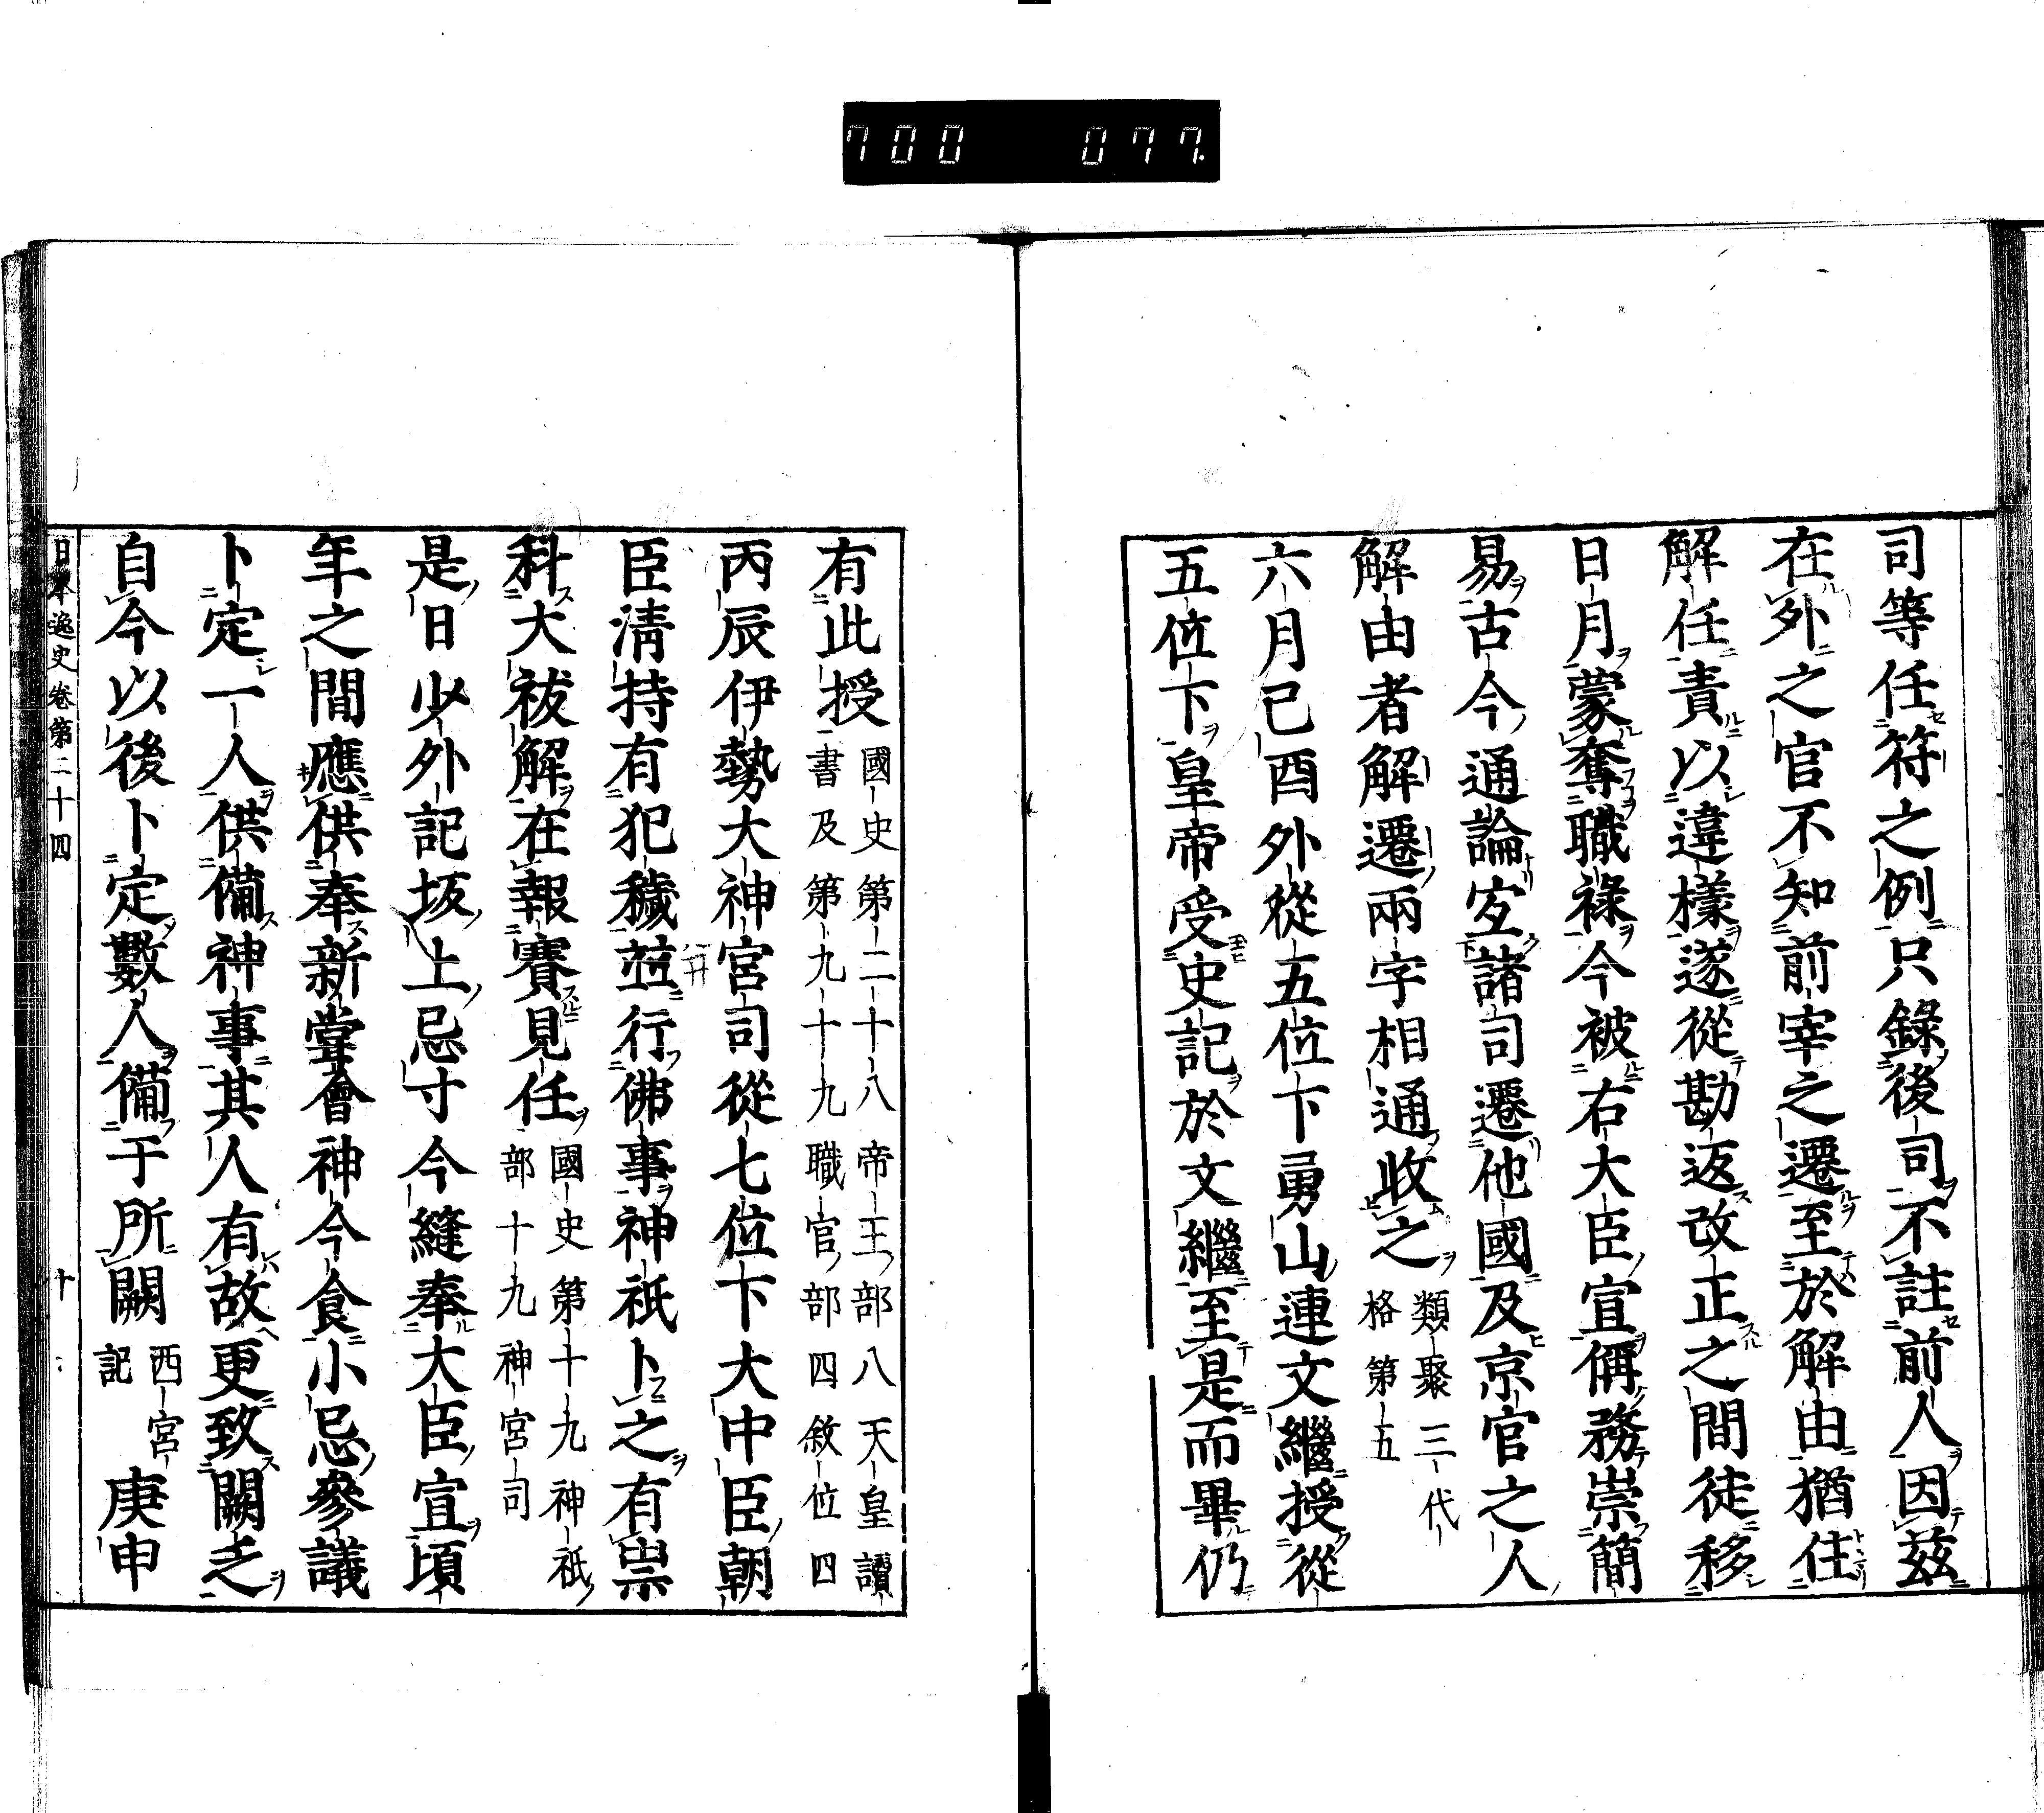 700 077
司等任符之例只錄後司不註前人因茲
在外之官不知前宰之遷至於解由猶住
解任責以違樣遂從勘返改正之間徒移
日月蒙奪職祿今被右大臣宣偁務崇簡
易古今通論宜諸司遷他國及京官之人
解由者解遷兩字相通收之類聚三代格第五
六月己酉外從五位下勇山連文繼授從
五位下皇帝受史記於文繼至是而畢仍
有此授國史第二十八帝王部八天皇讀書及第九十九職官部四敘位四
丙辰伊勢大神宮司從七位下大中臣朝
臣清持有犯穢並行佛事神祇卜之有祟
科大祓解在報賽見任國史第十九神祇部十九神宮司
是日少外記坂上忌寸今縫奉大臣宣頃
年之間應供奉新嘗會神今食小忌參議
卜定一人供備神事其人有故更致闕乏
自今以後卜定數人備于所闕西宮記庚申
日本逸史卷第二十四 十